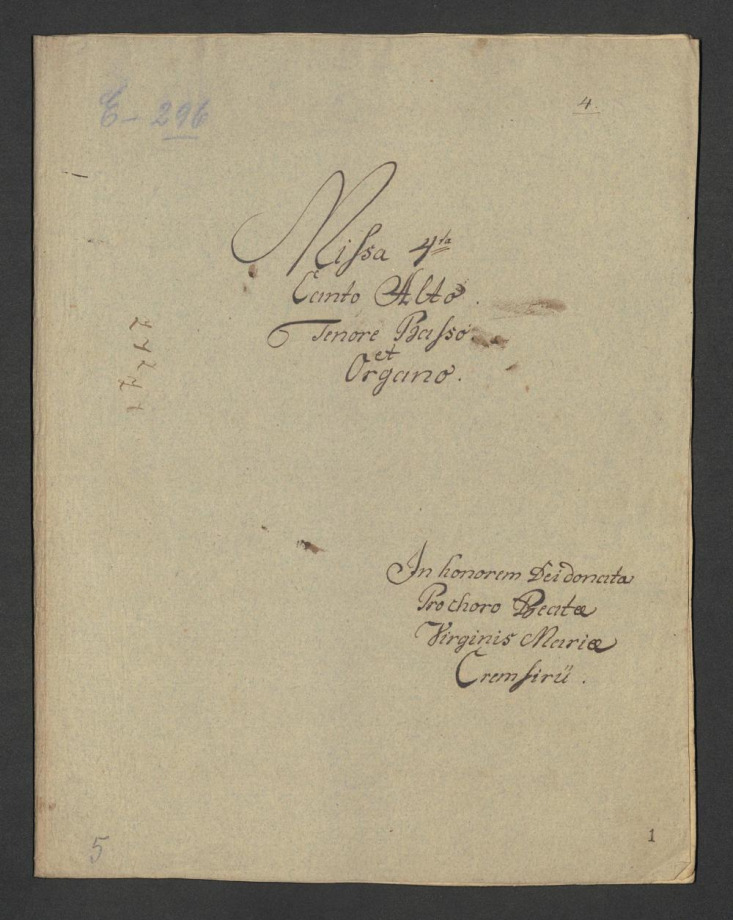 E – 296
4.
Missa 4ta
Canto Alto.
Tenore Basso.
et
Organo.
In honorem Dei donata
Pro choro Beatæ
Virginis Mariæ
Cremsirii.
5
1